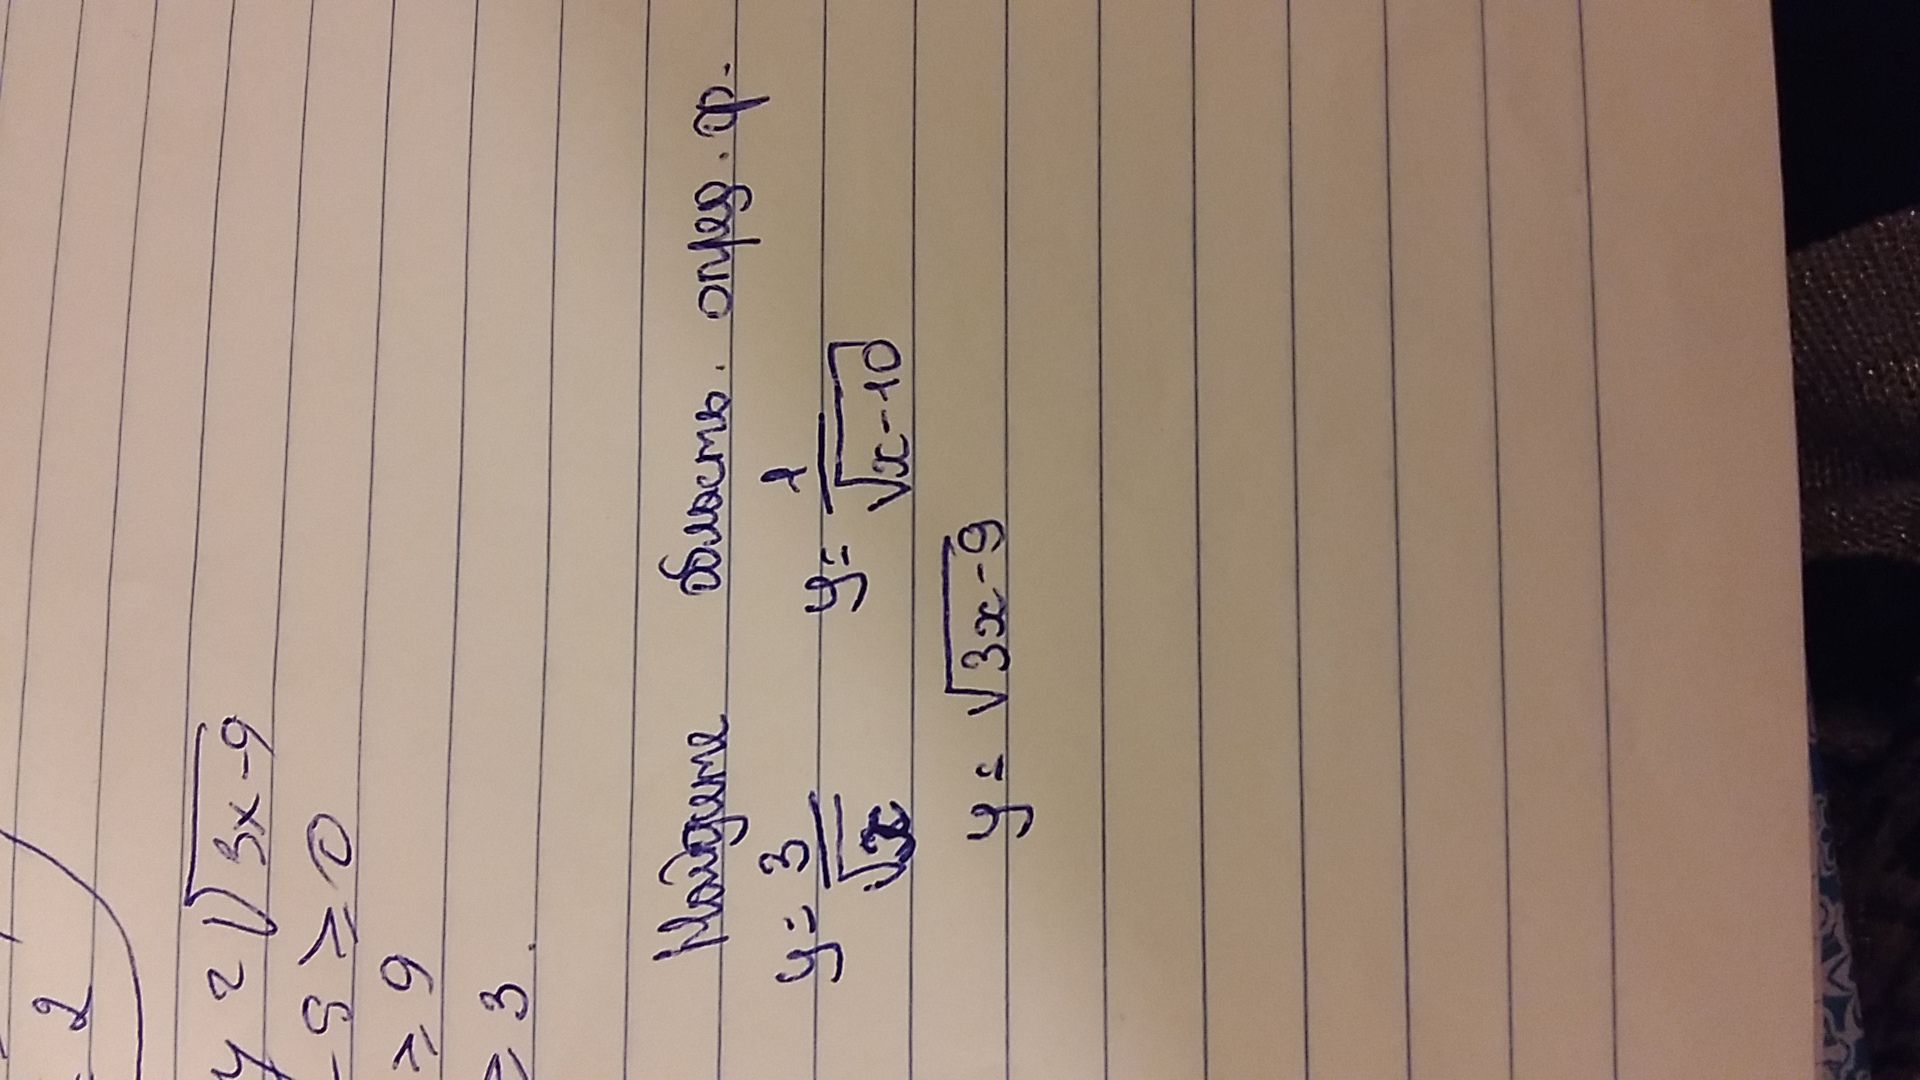 2
y = √3x-9
-9 ≥ 0
≥ 9
≥ 3.
Найдите область. опред. ф.
y = 3/√x y = 1/√x-10
y = √3x-9